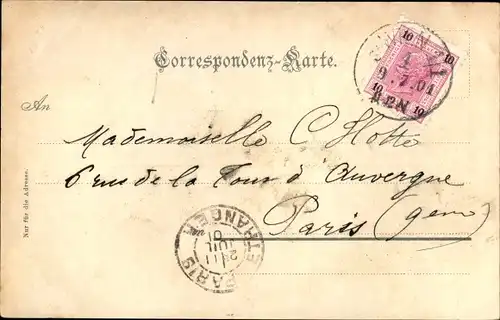 Correspondenz-Karte.
10 10
10 10
9.7.01
An
Mademoiselle C Hotte
6 rue de la Tour d'Auvergne
Paris
Nur für die Adresse.
PARIS ETRANGER
JUIL
01